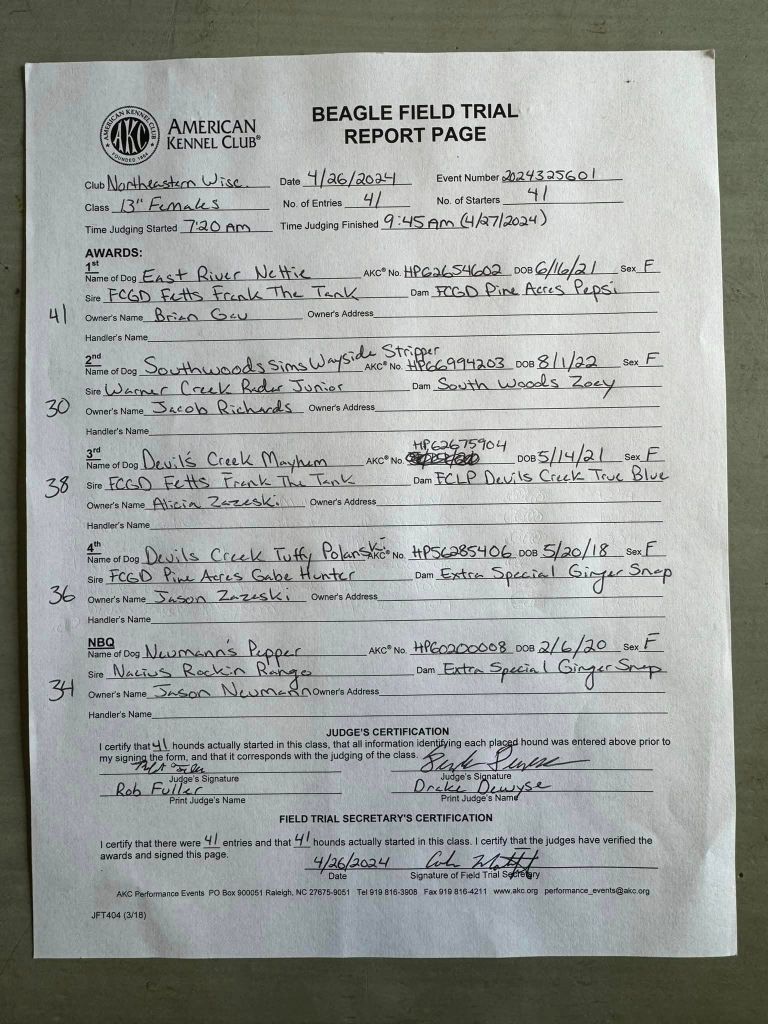 AMERICAN KENNEL CLUB
AKC
FOUNDED 1884
AMERICAN
KENNEL CLUB®
BEAGLE FIELD TRIAL
REPORT PAGE
Club Northeastern Wisc. Date 4/26/2024 Event Number 2024325601
Class 13" Females No. of Entries 41 No. of Starters 41
Time Judging Started 7:20 AM Time Judging Finished 9:45 AM (4/27/2024)
AWARDS:
1st
Name of Dog East River Nettie AKC® No. HP62654602 DOB 6/16/21 Sex F
Sire FCGD Fetts Frank The Tank Dam FCGD Pine Acres Pepsi
41 Owner's Name Brian Gau Owner's Address
Handler's Name
2nd
Name of Dog Southwoods Sims Wayside Stripper AKC® No. HP66994203 DOB 8/1/22 Sex F
Sire Warner Creek Radar Junior Dam South Woods Zoey
30 Owner's Name Jacob Richards Owner's Address
Handler's Name
3rd HP62675904
Name of Dog Devil's Creek Mayhem AKC® No. DOB 5/14/21 Sex F
38 Sire FCGD Fetts Frank The Tank Dam FCLP Devils Creek True Blue
Owner's Name Alicia Zazeski Owner's Address
Handler's Name
4th
Name of Dog Devils Creek Tuffy Polanski AKC® No. HP56285406 DOB 5/20/18 Sex F
Sire FCGD Pine Acres Gabe Hunter Dam Extra Special Ginger Snap
36 Owner's Name Jason Zazeski Owner's Address
Handler's Name
NBQ
Name of Dog Neumann's Pepper AKC® No. HP60200008 DOB 2/6/20 Sex F
Sire Nacius Rockin Range Dam Extra Special Ginger Snap
34 Owner's Name Jason Neumann Owner's Address
Handler's Name
JUDGE'S CERTIFICATION
I certify that 41 hounds actually started in this class, that all information identifying each placed hound was entered above prior to
my signing the form, and that it corresponds with the judging of the class.
Judge's Signature Judge's Signature
Rob Fuller Drake Dewyse
Print Judge's Name Print Judge's Name
FIELD TRIAL SECRETARY'S CERTIFICATION
I certify that there were 41 entries and that 41 hounds actually started in this class. I certify that the judges have verified the
awards and signed this page.
4/26/2024
Date Signature of Field Trial Secretary
AKC Performance Events PO Box 900051 Raleigh, NC 27675-9051 Tel 919 816-3908 Fax 919 816-4211 www.akc.org performance_events@akc.org
JFT404 (3/18)